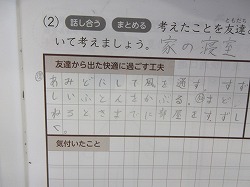 (2) 話し合う まとめる 考えたことを友達
ともだち
いて考えましょう。 家の寝室
友達から出た快適に過ごす工夫
あみどにして風を通す。すず
しいふとんをかぶる。まど
ねるときまでに部屋をすずし
く。
気付いたこと